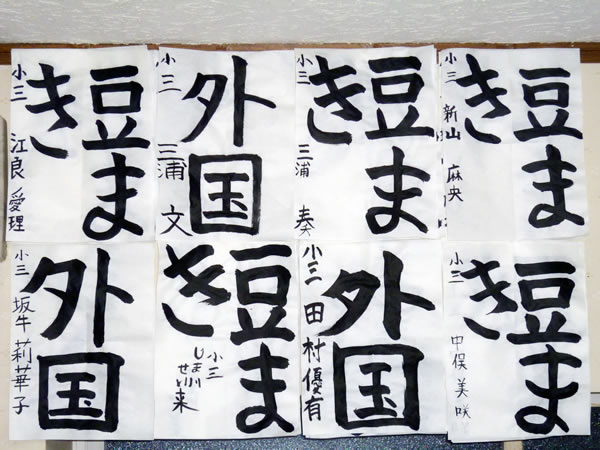 豆ま
き
小三 江良 愛理
外国
小三 三浦 文
豆ま
き
小三 三浦 奏
豆ま
き
小三 新山 麻央
外国
小三 坂牛 莉華子
豆ま
き
小三
外国
小三 田村優有
豆ま
き
小三 中俣 美咲